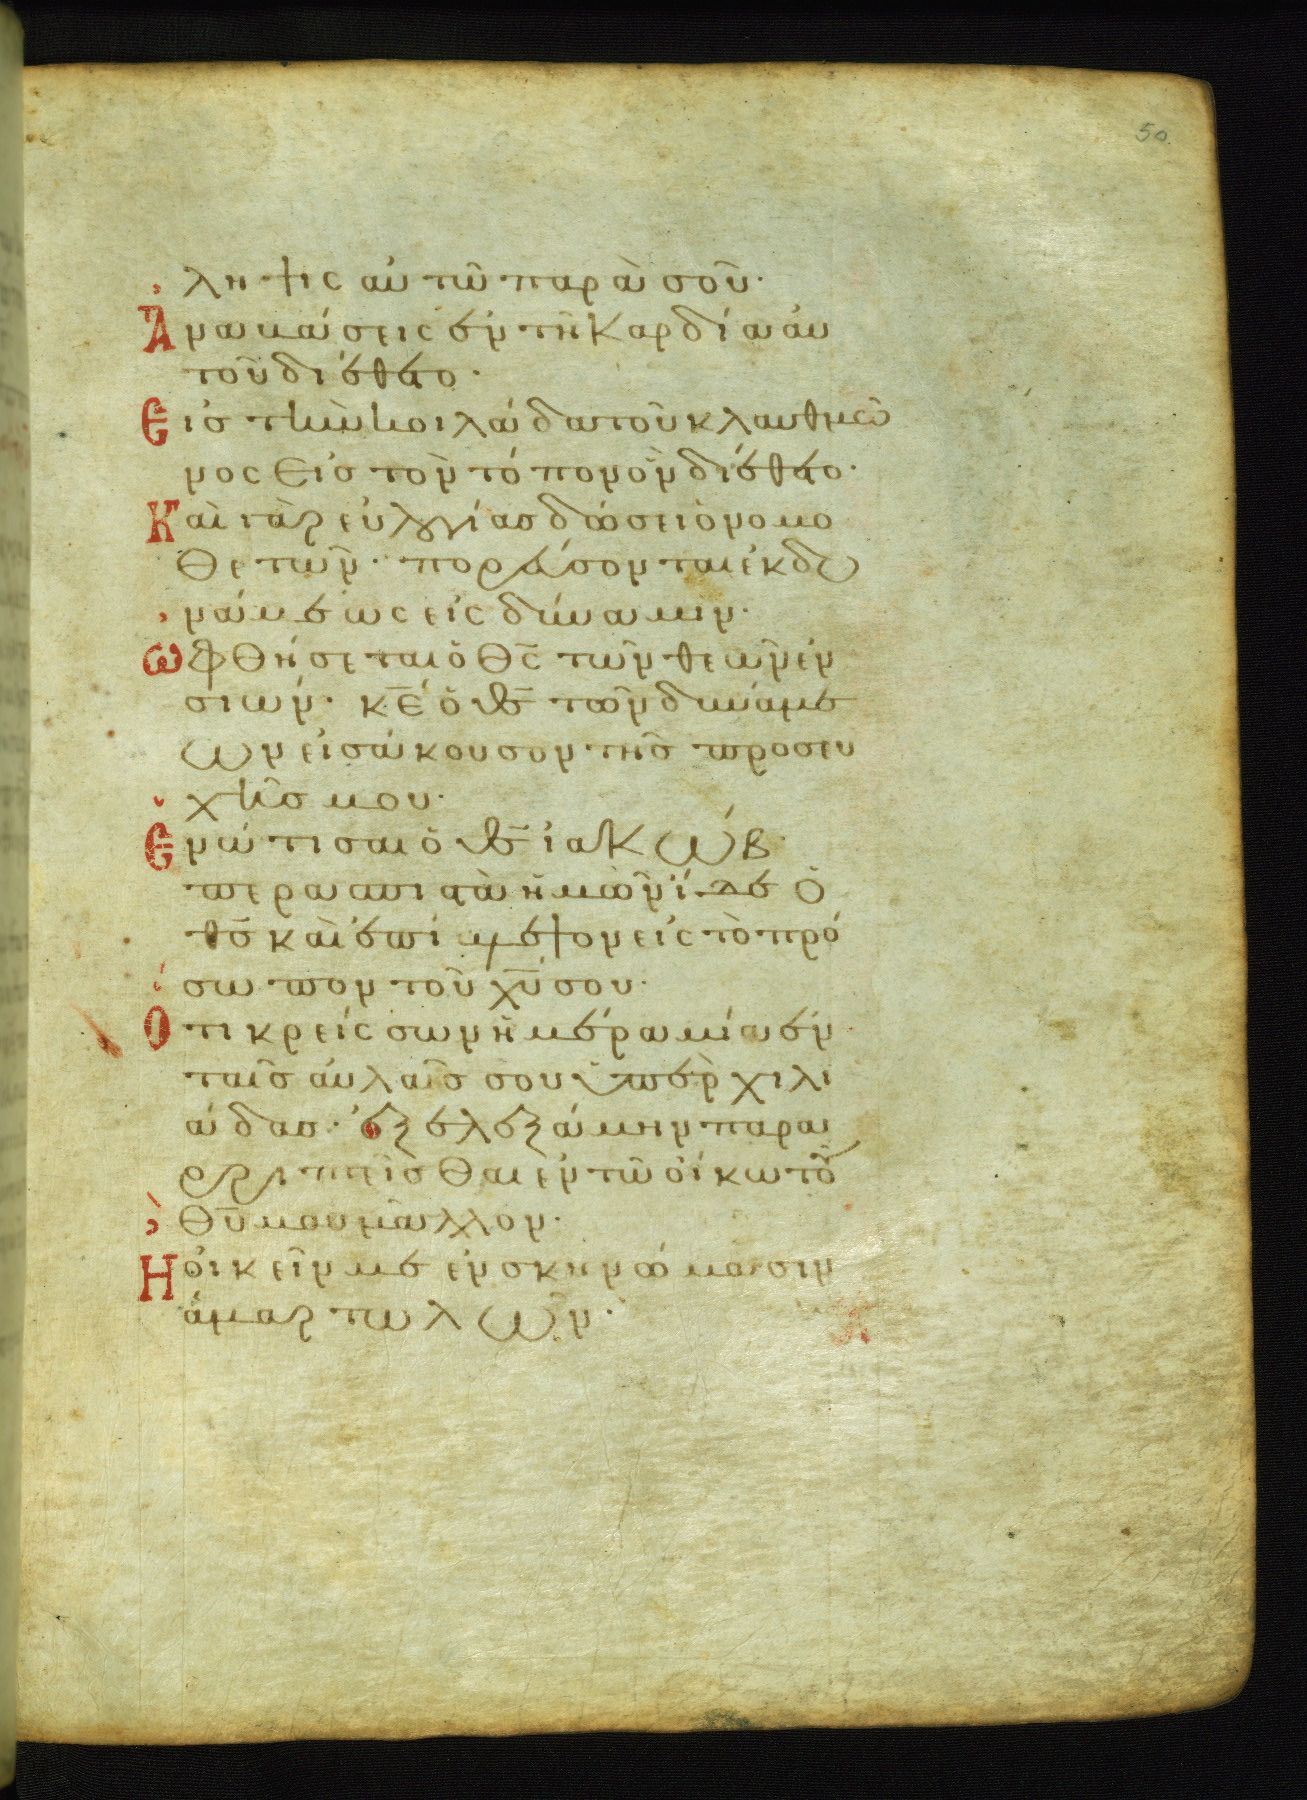 50
ληψις αὐτῶ παρὰ σοῦ·
Ἀναβάσεις ἐν τῆ καρδία αὐ
τοῦ διέθετο·
Εἰς τὴν κοιλάδα τοῦ κλαυθμῶ
νος εἰς τὸν τόπον ὃν διέθετο·
Καὶ γὰρ εὐλογίας δώσει ὁ νομο
θετῶν· πορεύσονται ἐκ δυ
νάμεως εἰς δύναμιν·
Ὀφθήσεται ὁ θ̅ς̅ τῶν θεῶν ἐν
σιών· κ̅ε̅ ὁ θ̅ς̅ τῶν δυνάμε
ων εἰσάκουσον τῆς προσευ
χῆς μου·
Ἐνώτισαι ὁ θ̅ς̅ ἰακώβ·
περασπιστὰ ἡμῶν ἴδε ὁ
θ̅ς̅ καὶ ἐπίβλεψον εἰς τὸ πρό
σωπον τοῦ χ̅υ̅ σου·
Ὅτι κρείσσων ἡμέρα μία ἐν
ταῖς αὐλαῖς σου ὑπὲρ χιλι
άδας· ἐξελεξάμην παρα
ρριπτεῖσθαι ἐν τῶ οἴκω τοῦ
θ̅υ̅ μου μᾶλλον·
Ἢ οἰκεῖν με ἐν σκηνώμασιν
ἁμαρτωλῶν·